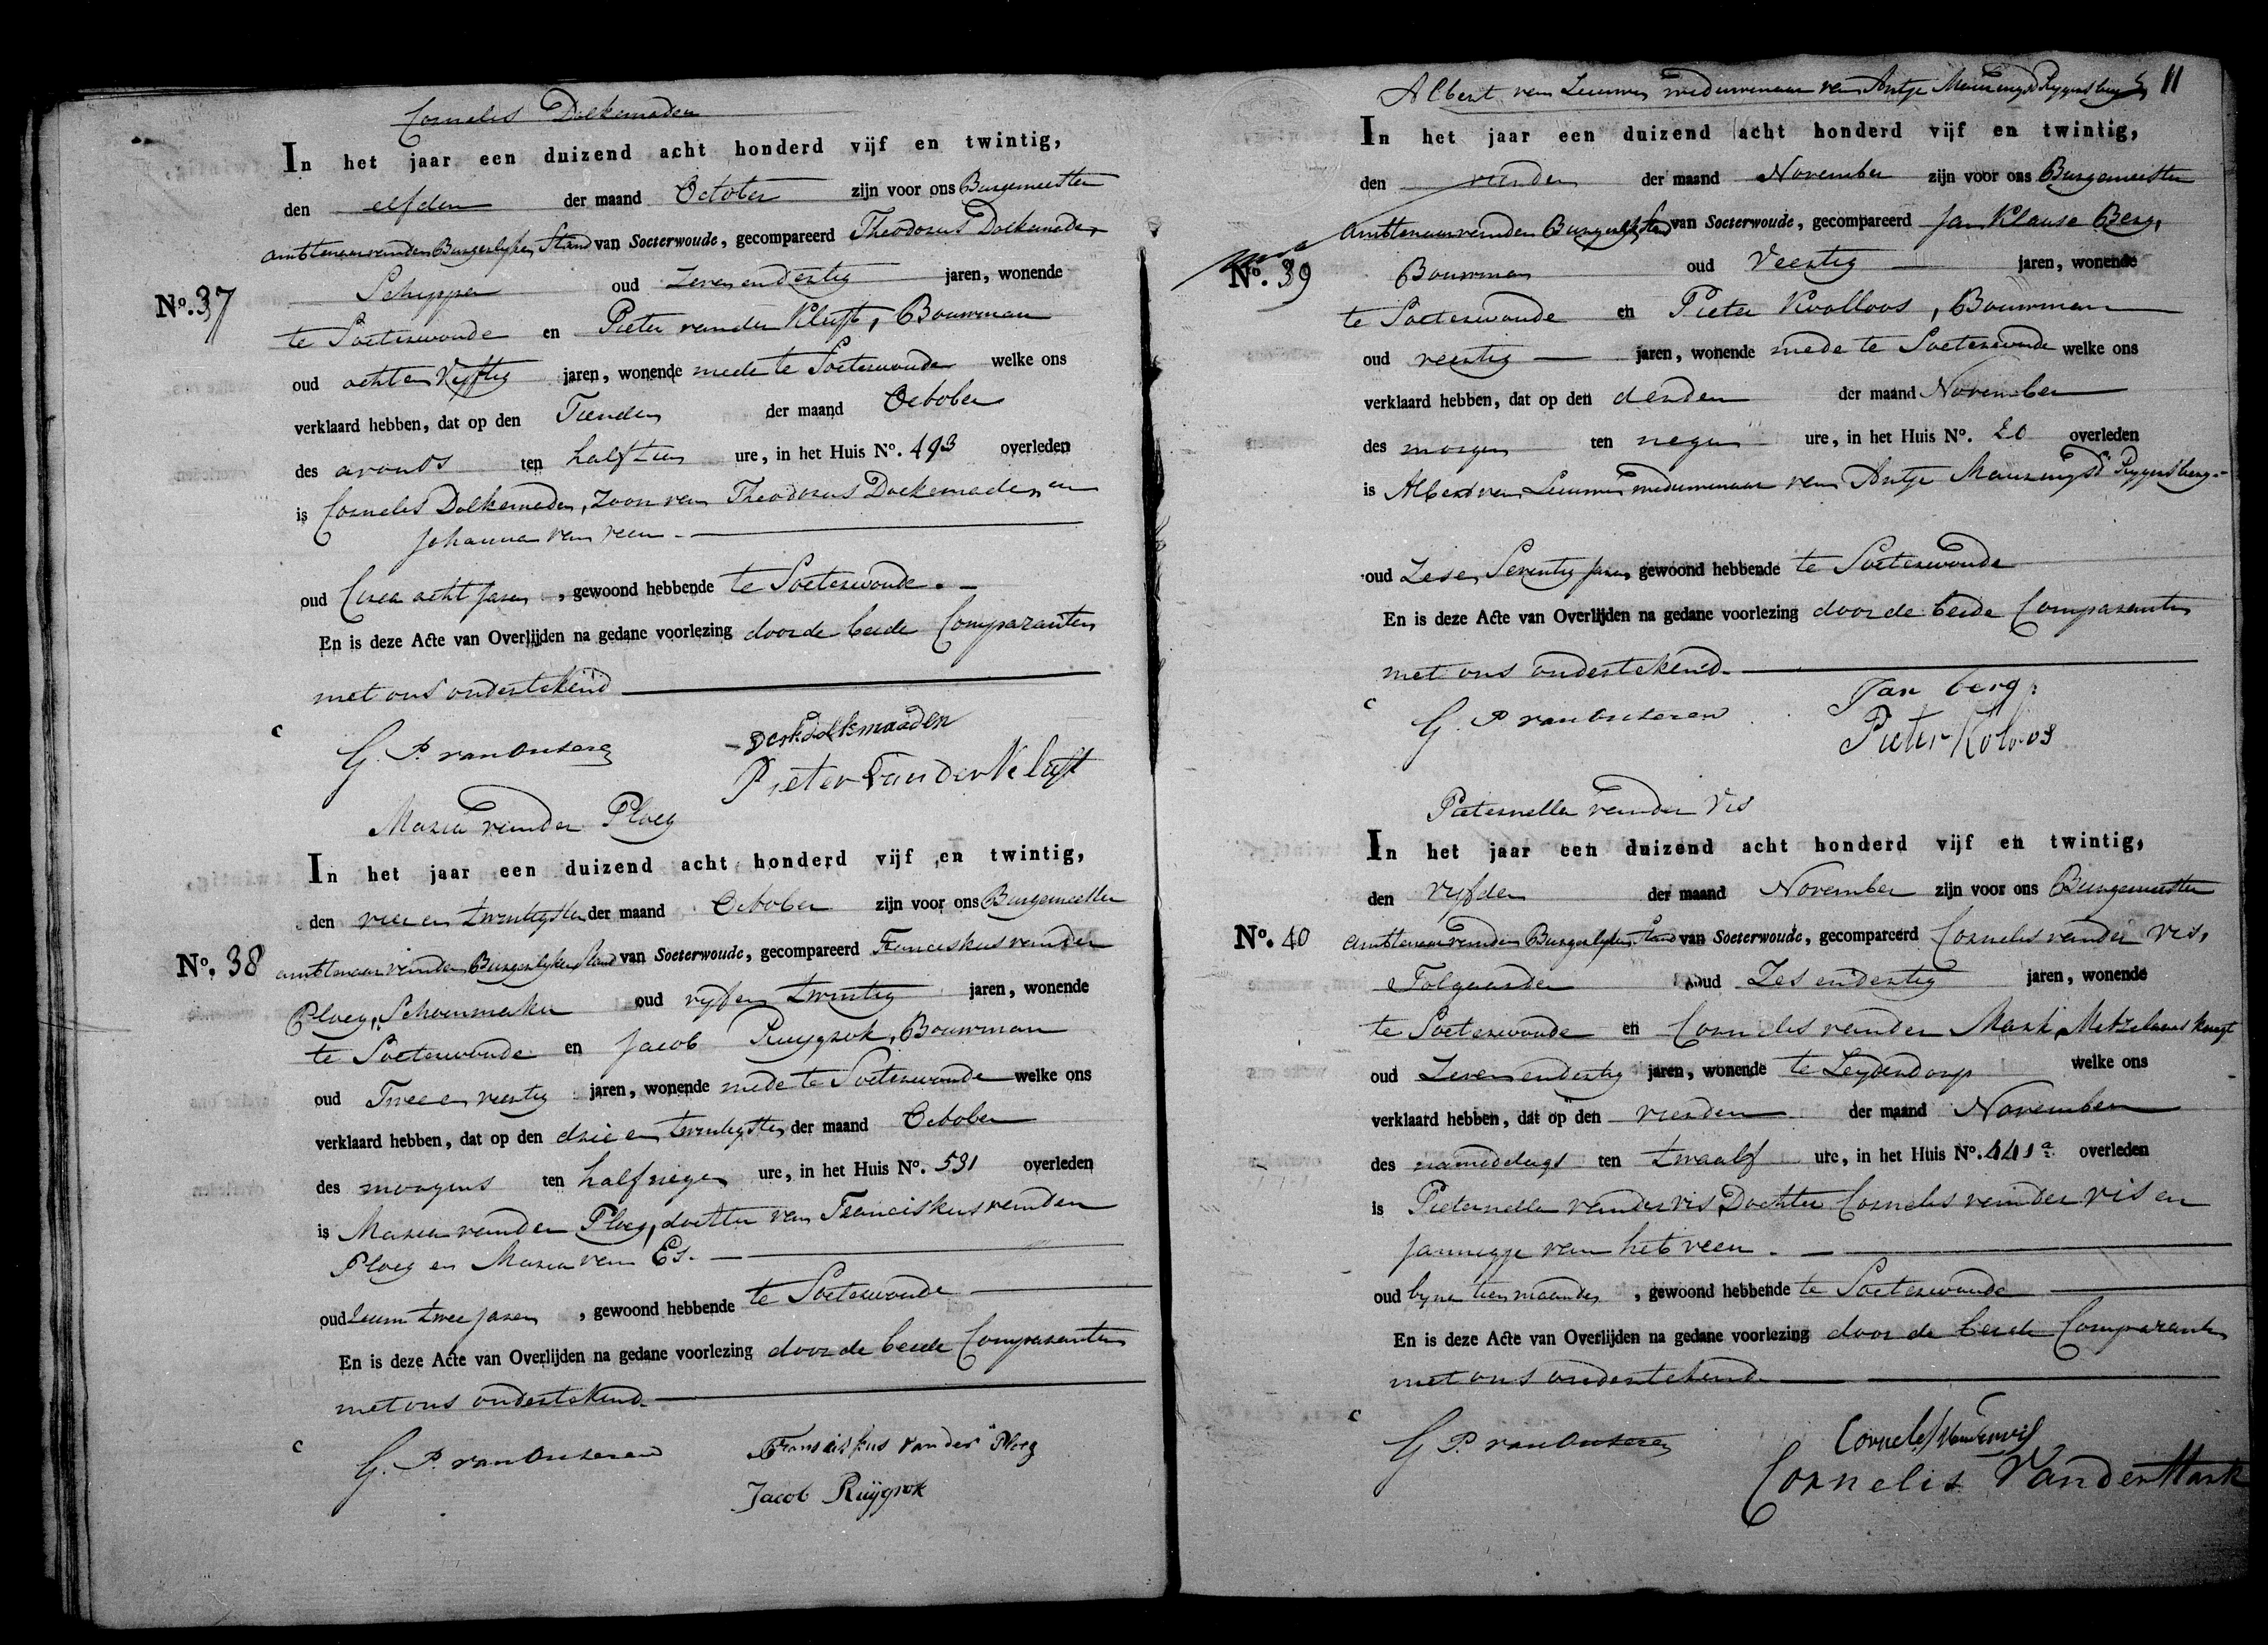 Cornelis Dolkemaden
In het jaar een duizend acht honderd vijf en twintig,
den elfden der maand October zijn voor ons Burgemeester
ambtenaar van den Burgerlyken Stand van Soeterwoude, gecompareerd Theodorus Dolkemaden
Schipper oud Zeven en dertig jaren, wonende
No. 37
te Soeterwoude en Pieter van der Kluft, Bouwman
oud acht en Vyftig jaren, wonende mede te Soeterwoude welke ons
verklaard hebben, dat op den Tienden der maand October
des avonds ten half tien ure, in het Huis No. 493 overleden
is Cornelis Dolkemaden, Zoon van Theodorus Dolkemaden en
Johanna van veen
oud Circa acht Jaren, gewoond hebbende te Soeterwoude.
En is deze Acte van Overlijden na gedane voorlezing door de beide Comparanten
met ons ondertekend
c
G. P. van Outeren
Derk dolkmaaden
Pieter Van der Kluft
Maria van der Ploeg
In het jaar een duizend acht honderd vijf en twintig,
den vier en twintigsten der maand October zijn voor ons Burgemeester
No. 38
ambtenaar van den Burgerlyken Stand van Soeterwoude, gecompareerd Franciskus van der
Ploeg, Schoenmaker oud vyf en twintig jaren, wonende
te Soeterwoude en Jacob Ruygrok, Bouwman
oud Twee en veertig jaren, wonende mede te Soeterwoude welke ons
verklaard hebben, dat op den drie en twintigsten der maand October
des morgens ten half negen ure, in het Huis No. 531 overleden
is Maria van der Ploeg, dochter van Franciskus van der
Ploeg en Maria van Es.
oud ruim twee jaren, gewoond hebbende te Soeterwoude
En is deze Acte van Overlijden na gedane voorlezing door de beide Comparanten
met ons ondertekend
c
G. P. van Outeren
Franciskus van der Ploeg
Jacob Ruÿgrok
Albert van Leeuwen weduwenaar van Antje Rygersberg 11
In het jaar een duizend acht honderd vijf en twintig,
den vierden der maand November zijn voor ons Burgemeester
ambtenaar van den Burgerlyken Stand van Soeterwoude, gecompareerd Jan Klause Berg,
No. 39
Bouwman oud Veertig jaren, wonende
te Soeterwoude en Pieter Kolloos, Bouwman
oud veertig jaren, wonende mede te Soeterwoude welke ons
verklaard hebben, dat op den derden der maand November
des morgen ten negen ure, in het Huis No. 20 overleden
is Albert van Leeuwen weduwenaar van Antje Rygersberg
oud Zes en Seventig Jaren, gewoond hebbende te Soeterwoude
En is deze Acte van Overlijden na gedane voorlezing door de beide Comparanten
met ons ondertekend
c
G. P. van Outeren
Jan berg
Pieter Koloos
Pieternella van der Vis
In het jaar een duizend acht honderd vijf en twintig,
den vyfden der maand November zijn voor ons Burgemeester
No. 40
ambtenaar van den Burgerlyken Stand van Soeterwoude, gecompareerd Cornelis van der Vis,
Tolgaarder oud Zes en dertig jaren, wonende
te Soeterwoude en Cornelis van der Mark, Metzelaars knegt
oud Zeven en dertig jaren, wonende te Leyderdorp welke ons
verklaard hebben, dat op den vierden der maand November
des namiddags ten twaalf ure, in het Huis No. 441a overleden
is Pieternella van der vis, Dochter Cornelis van der vis en
Jannigje van het veen.
oud byna tien maanden, gewoond hebbende te Soeterwoude
En is deze Acte van Overlijden na gedane voorlezing door de beide Comparanten
met ons ondertekend
c
G. P. van Outeren
Cornelis van der vis
Cornelis Van der Mark